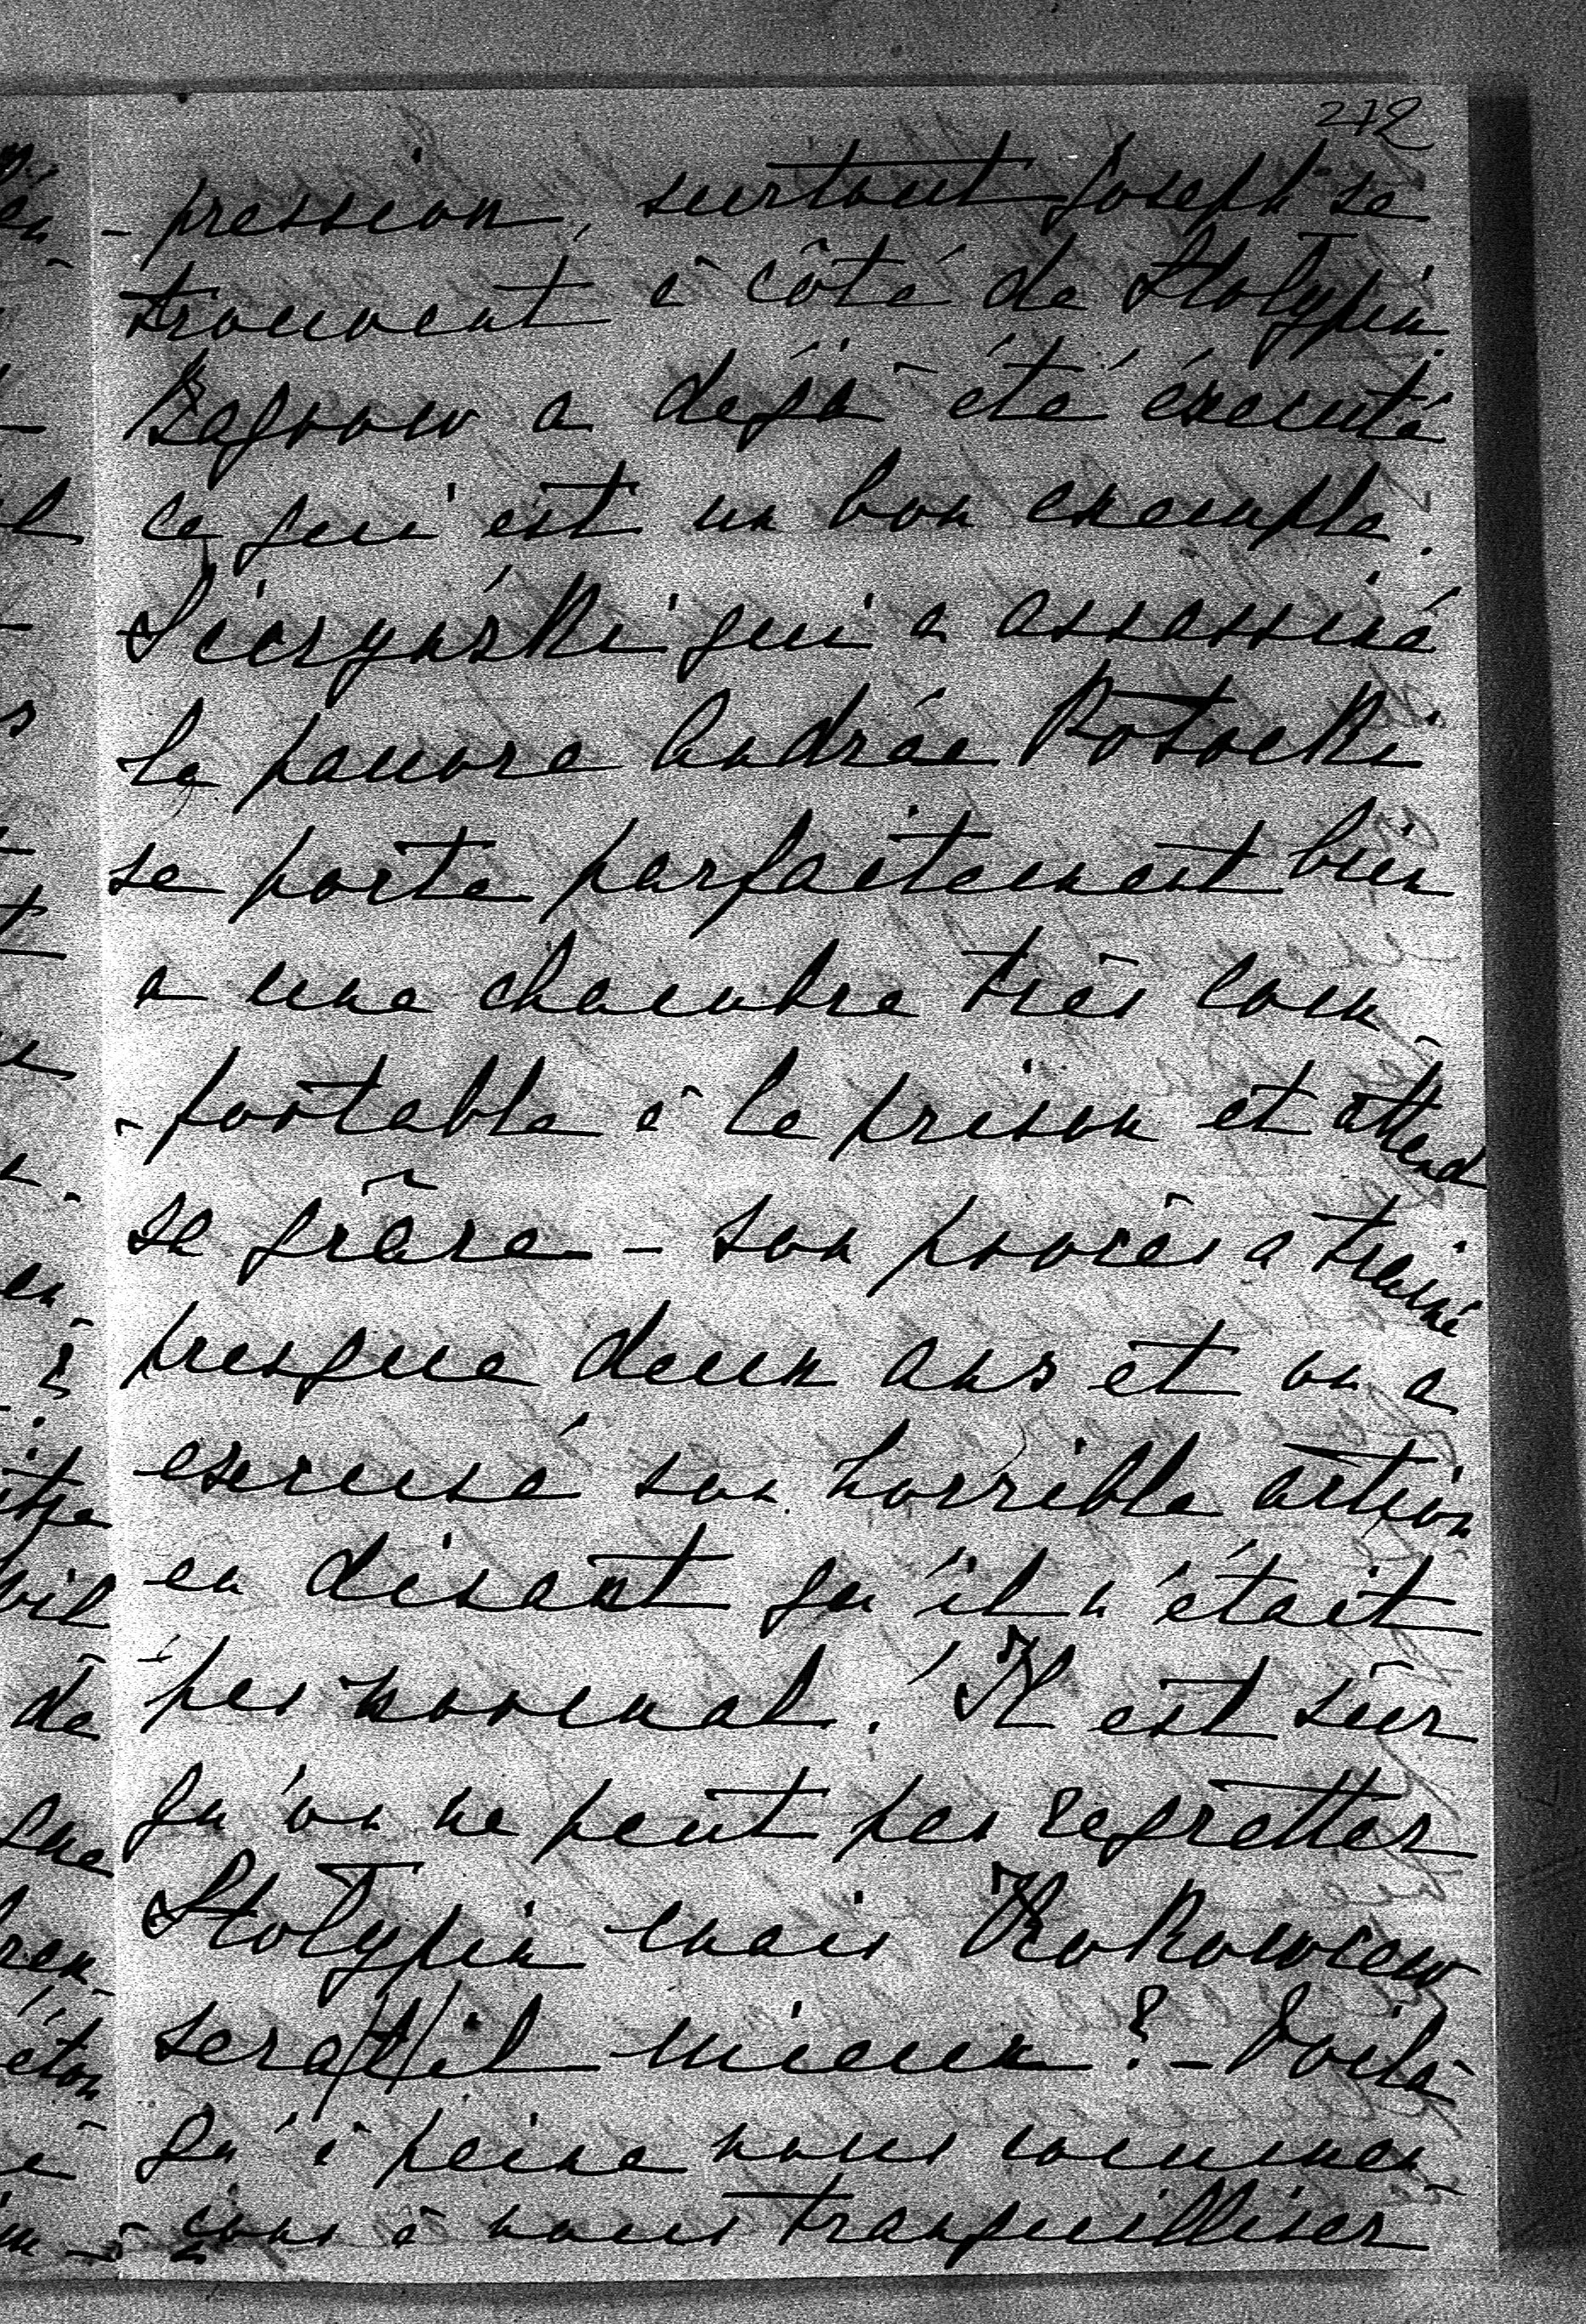 272
- pression, surtout Joseph se
trouvant à côté de Stolypin.
Bagrow a déjà été éxécuté
ce qui est un bon exemple.
Siczyński qui a assassiné
le pauvre André Potocki
se porte parfaitement bien
a une chambre très com-
- fortable à la prison et attend
sa grâce - son procès a traîné
presque deux ans et on a
excusé son horrible action
en disant qu'il n'était
pas normal. Il est sûr
qu'on ne peut pas regretter
Stolypin mais Kokowcew
sera/t/il mieux? - Voilà
qu'à peine nous commen-
- çons à nous tranquilliser